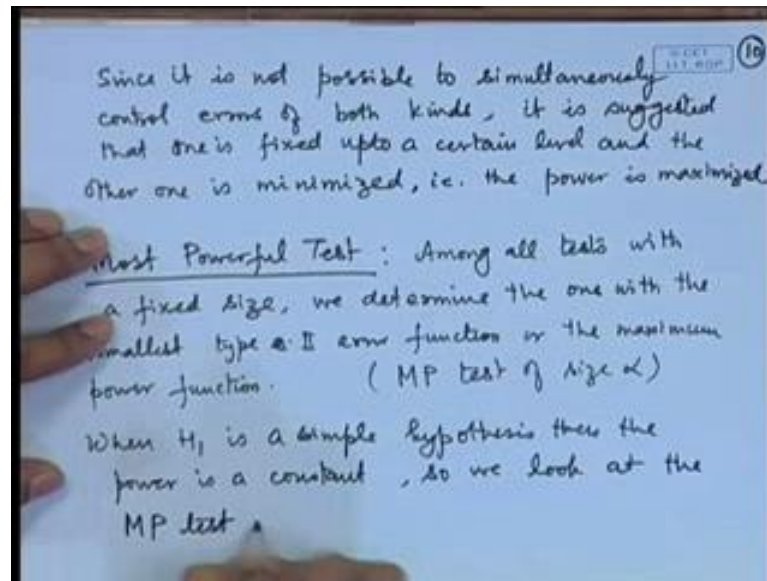 10
Since it is not possible to simultaneously
control errors of both kinds, it is suggested
that one is fixed upto a certain level and the
other one is minimized, i.e. the power is maximized
Most Powerful Test : Among all tests with
a fixed size, we determine the one with the
smallest type II error function or the maximum
power function. (MP test of size α)
When H₁ is a simple hypothesis then the
power is a constant, so we look at the
MP test